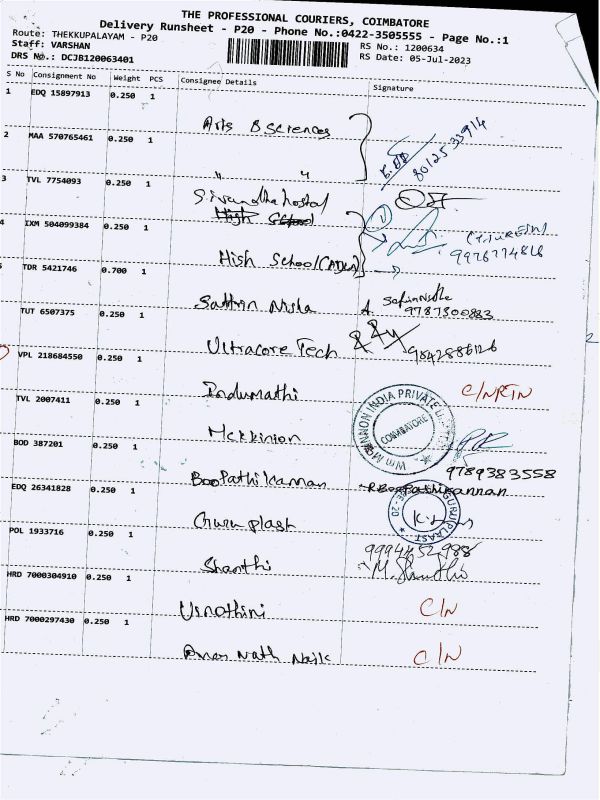 THE PROFESSIONAL COURIERS, COIMBATORE
Delivery Runsheet - P20 - Phone No.:0422-3505555 - Page No.:1
Route: THEKKUPALAYAM - P20
Staff: VARSHAN
DRS No.: DCJB120063401
RS No.: 1200634
RS Date: 05-Jul-2023
S No Consignment No Weight PCS Consignee Details Signature
1 EDQ 15897913 0.250 1
Arts & Sciences
80125 33914
2 MAA 570765461 0.250 1
" "
3 TVL 7754093 0.250 1
High School
4 IXM 504099384 0.250 1
High School
9976774816
5 TDR 5421746 0.700 1
9787300883
TUT 6507375 0.250 1
Ultracore Tech
9842886126
VPL 218684550 0.250 1
Indumathi
C/N RTN
TVL 2007411 0.250 1
INDIA PRIVATE
COIMBATORE
BOD 387201 0.250 1
BooPathikannan
9789383558
R.BooPathikannan
EDQ 26341828 0.250 1
Guru plast
POL 1933716 0.250 1
Shanthi
9994452988
M. Shanthi
HRD 7000304910 0.250 1
Vinothini
C/N
HRD 7000297430 0.250 1
Amar Nath Naik
C/N